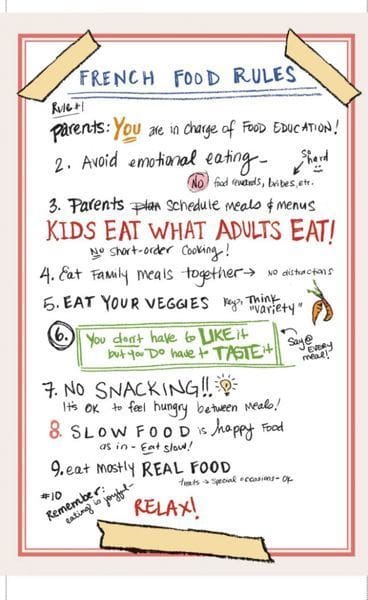 FRENCH FOOD RULES
Rule #1
Parents: YOU are in charge of FOOD EDUCATION!
2. Avoid emotional eating-
So hard
NO food rewards, bribes, etc.
3. Parents plan SCHEDULE meals & menus
KIDS EAT WHAT ADULTS EAT!
NO short-order cooking!
4. Eat Family meals together → NO distractions
5. EAT YOUR VEGGIES Key: Think "Variety"
6. You don't have to LIKE it
but you DO have to TASTE it
Say @ EVERY meal!
7. NO SNACKING!!
It's OK to feel hungry between meals!
8. SLOW FOOD is happy Food
as in - Eat slow!
9. eat mostly REAL FOOD
treats → special occasions - OK
#10
Remember:
eating is joyful-
RELAX!